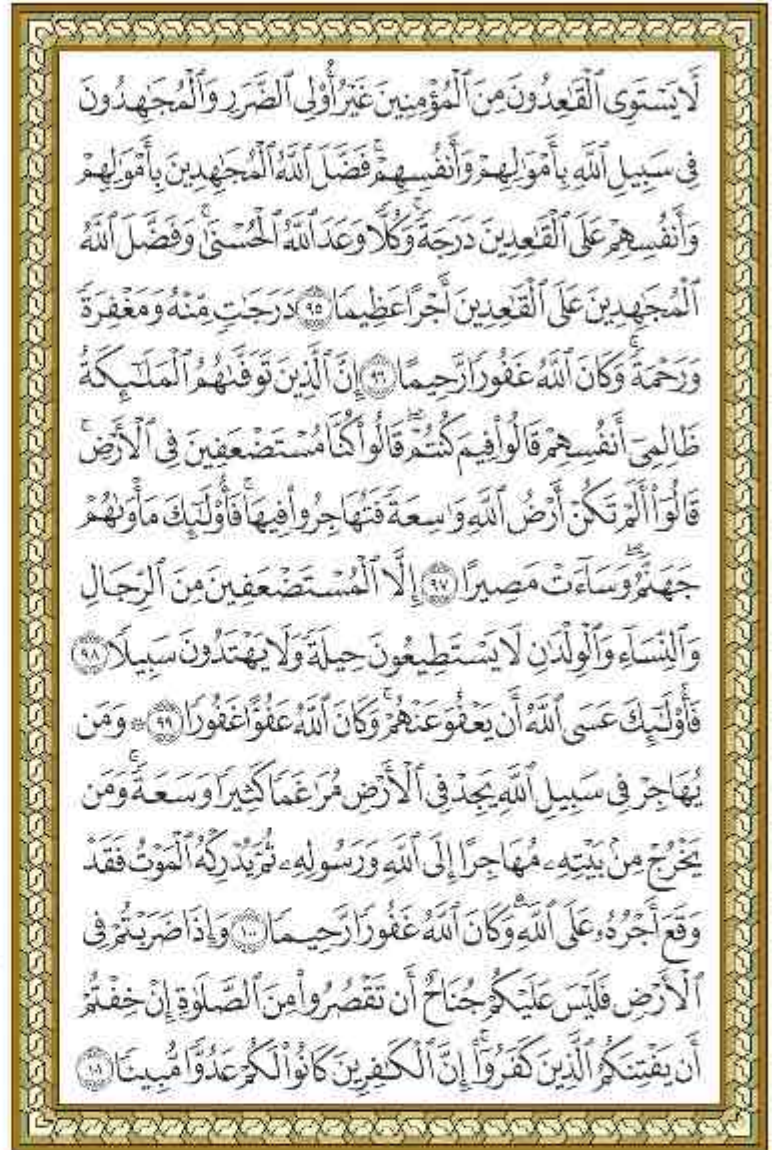 لَّا يَسْتَوِى ٱلْقَٰعِدُونَ مِنَ ٱلْمُؤْمِنِينَ غَيْرُ أُو۟لِى ٱلضَّرَرِ وَٱلْمُجَٰهِدُونَ
فِى سَبِيلِ ٱللَّهِ بِأَمْوَٰلِهِمْ وَأَنفُسِهِمْ ۚ فَضَّلَ ٱللَّهُ ٱلْمُجَٰهِدِينَ بِأَمْوَٰلِهِمْ
وَأَنفُسِهِمْ عَلَى ٱلْقَٰعِدِينَ دَرَجَةً ۚ وَكُلًّا وَعَدَ ٱللَّهُ ٱلْحُسْنَىٰ ۚ وَفَضَّلَ ٱللَّهُ
ٱلْمُجَٰهِدِينَ عَلَى ٱلْقَٰعِدِينَ أَجْرًا عَظِيمًا ٩٥ دَرَجَٰتٍ مِّنْهُ وَمَغْفِرَةً
وَرَحْمَةً ۚ وَكَانَ ٱللَّهُ غَفُورًا رَّحِيمًا ٩٦ إِنَّ ٱلَّذِينَ تَوَفَّىٰهُمُ ٱلْمَلَٰٓئِكَةُ
ظَالِمِىٓ أَنفُسِهِمْ قَالُوا۟ فِيمَ كُنتُمْ ۖ قَالُوا۟ كُنَّا مُسْتَضْعَفِينَ فِى ٱلْأَرْضِ ۚ
قَالُوٓا۟ أَلَمْ تَكُنْ أَرْضُ ٱللَّهِ وَٰسِعَةً فَتُهَاجِرُوا۟ فِيهَا ۚ فَأُو۟لَٰٓئِكَ مَأْوَىٰهُمْ
جَهَنَّمُ ۖ وَسَآءَتْ مَصِيرًا ٩٧ إِلَّا ٱلْمُسْتَضْعَفِينَ مِنَ ٱلرِّجَالِ
وَٱلنِّسَآءِ وَٱلْوِلْدَٰنِ لَا يَسْتَطِيعُونَ حِيلَةً وَلَا يَهْتَدُونَ سَبِيلًا ٩٨
فَأُو۟لَٰٓئِكَ عَسَى ٱللَّهُ أَن يَعْفُوَ عَنْهُمْ ۚ وَكَانَ ٱللَّهُ عَفُوًّا غَفُورًا ٩٩ ۞ وَمَن
يُهَاجِرْ فِى سَبِيلِ ٱللَّهِ يَجِدْ فِى ٱلْأَرْضِ مُرَٰغَمًا كَثِيرًا وَسَعَةً ۚ وَمَن
يَخْرُجْ مِنۢ بَيْتِهِۦ مُهَاجِرًا إِلَى ٱللَّهِ وَرَسُولِهِۦ ثُمَّ يُدْرِكْهُ ٱلْمَوْتُ فَقَدْ
وَقَعَ أَجْرُهُۥ عَلَى ٱللَّهِ ۗ وَكَانَ ٱللَّهُ غَفُورًا رَّحِيمًا ١٠٠ وَإِذَا ضَرَبْتُمْ فِى
ٱلْأَرْضِ فَلَيْسَ عَلَيْكُمْ جُنَاحٌ أَن تَقْصُرُوا۟ مِنَ ٱلصَّلَوٰةِ إِنْ خِفْتُمْ
أَن يَفْتِنَكُمُ ٱلَّذِينَ كَفَرُوٓا۟ ۚ إِنَّ ٱلْكَٰفِرِينَ كَانُوا۟ لَكُمْ عَدُوًّا مُّبِينًا ١٠١